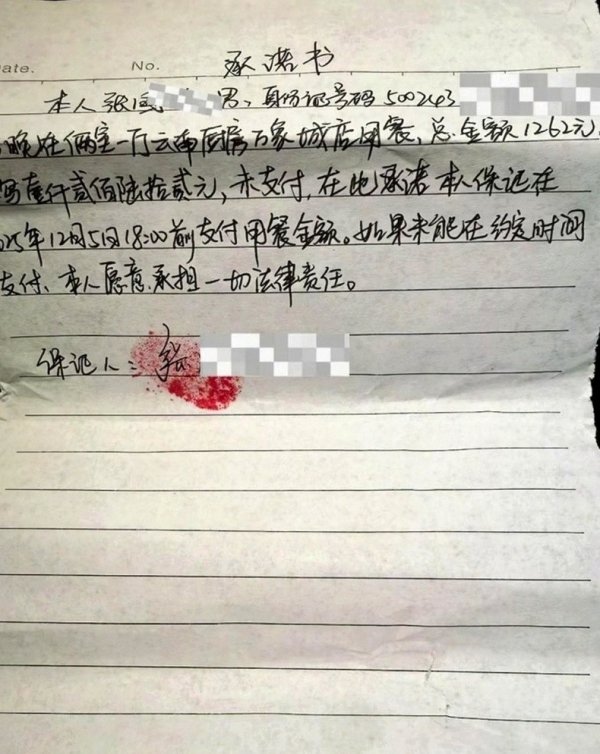 ate. No. 承诺书
本人张 男、身份证号码500243
晚在俩室一厅云南厨房万象城店用餐、总金额1262元
写壹仟贰佰陆拾贰元,未支付,在此承诺本人保证在
25年12月5日18:00前支付用餐金额。如果未能在约定时间
支付、本人愿意承担一切法律责任。
保证人:张